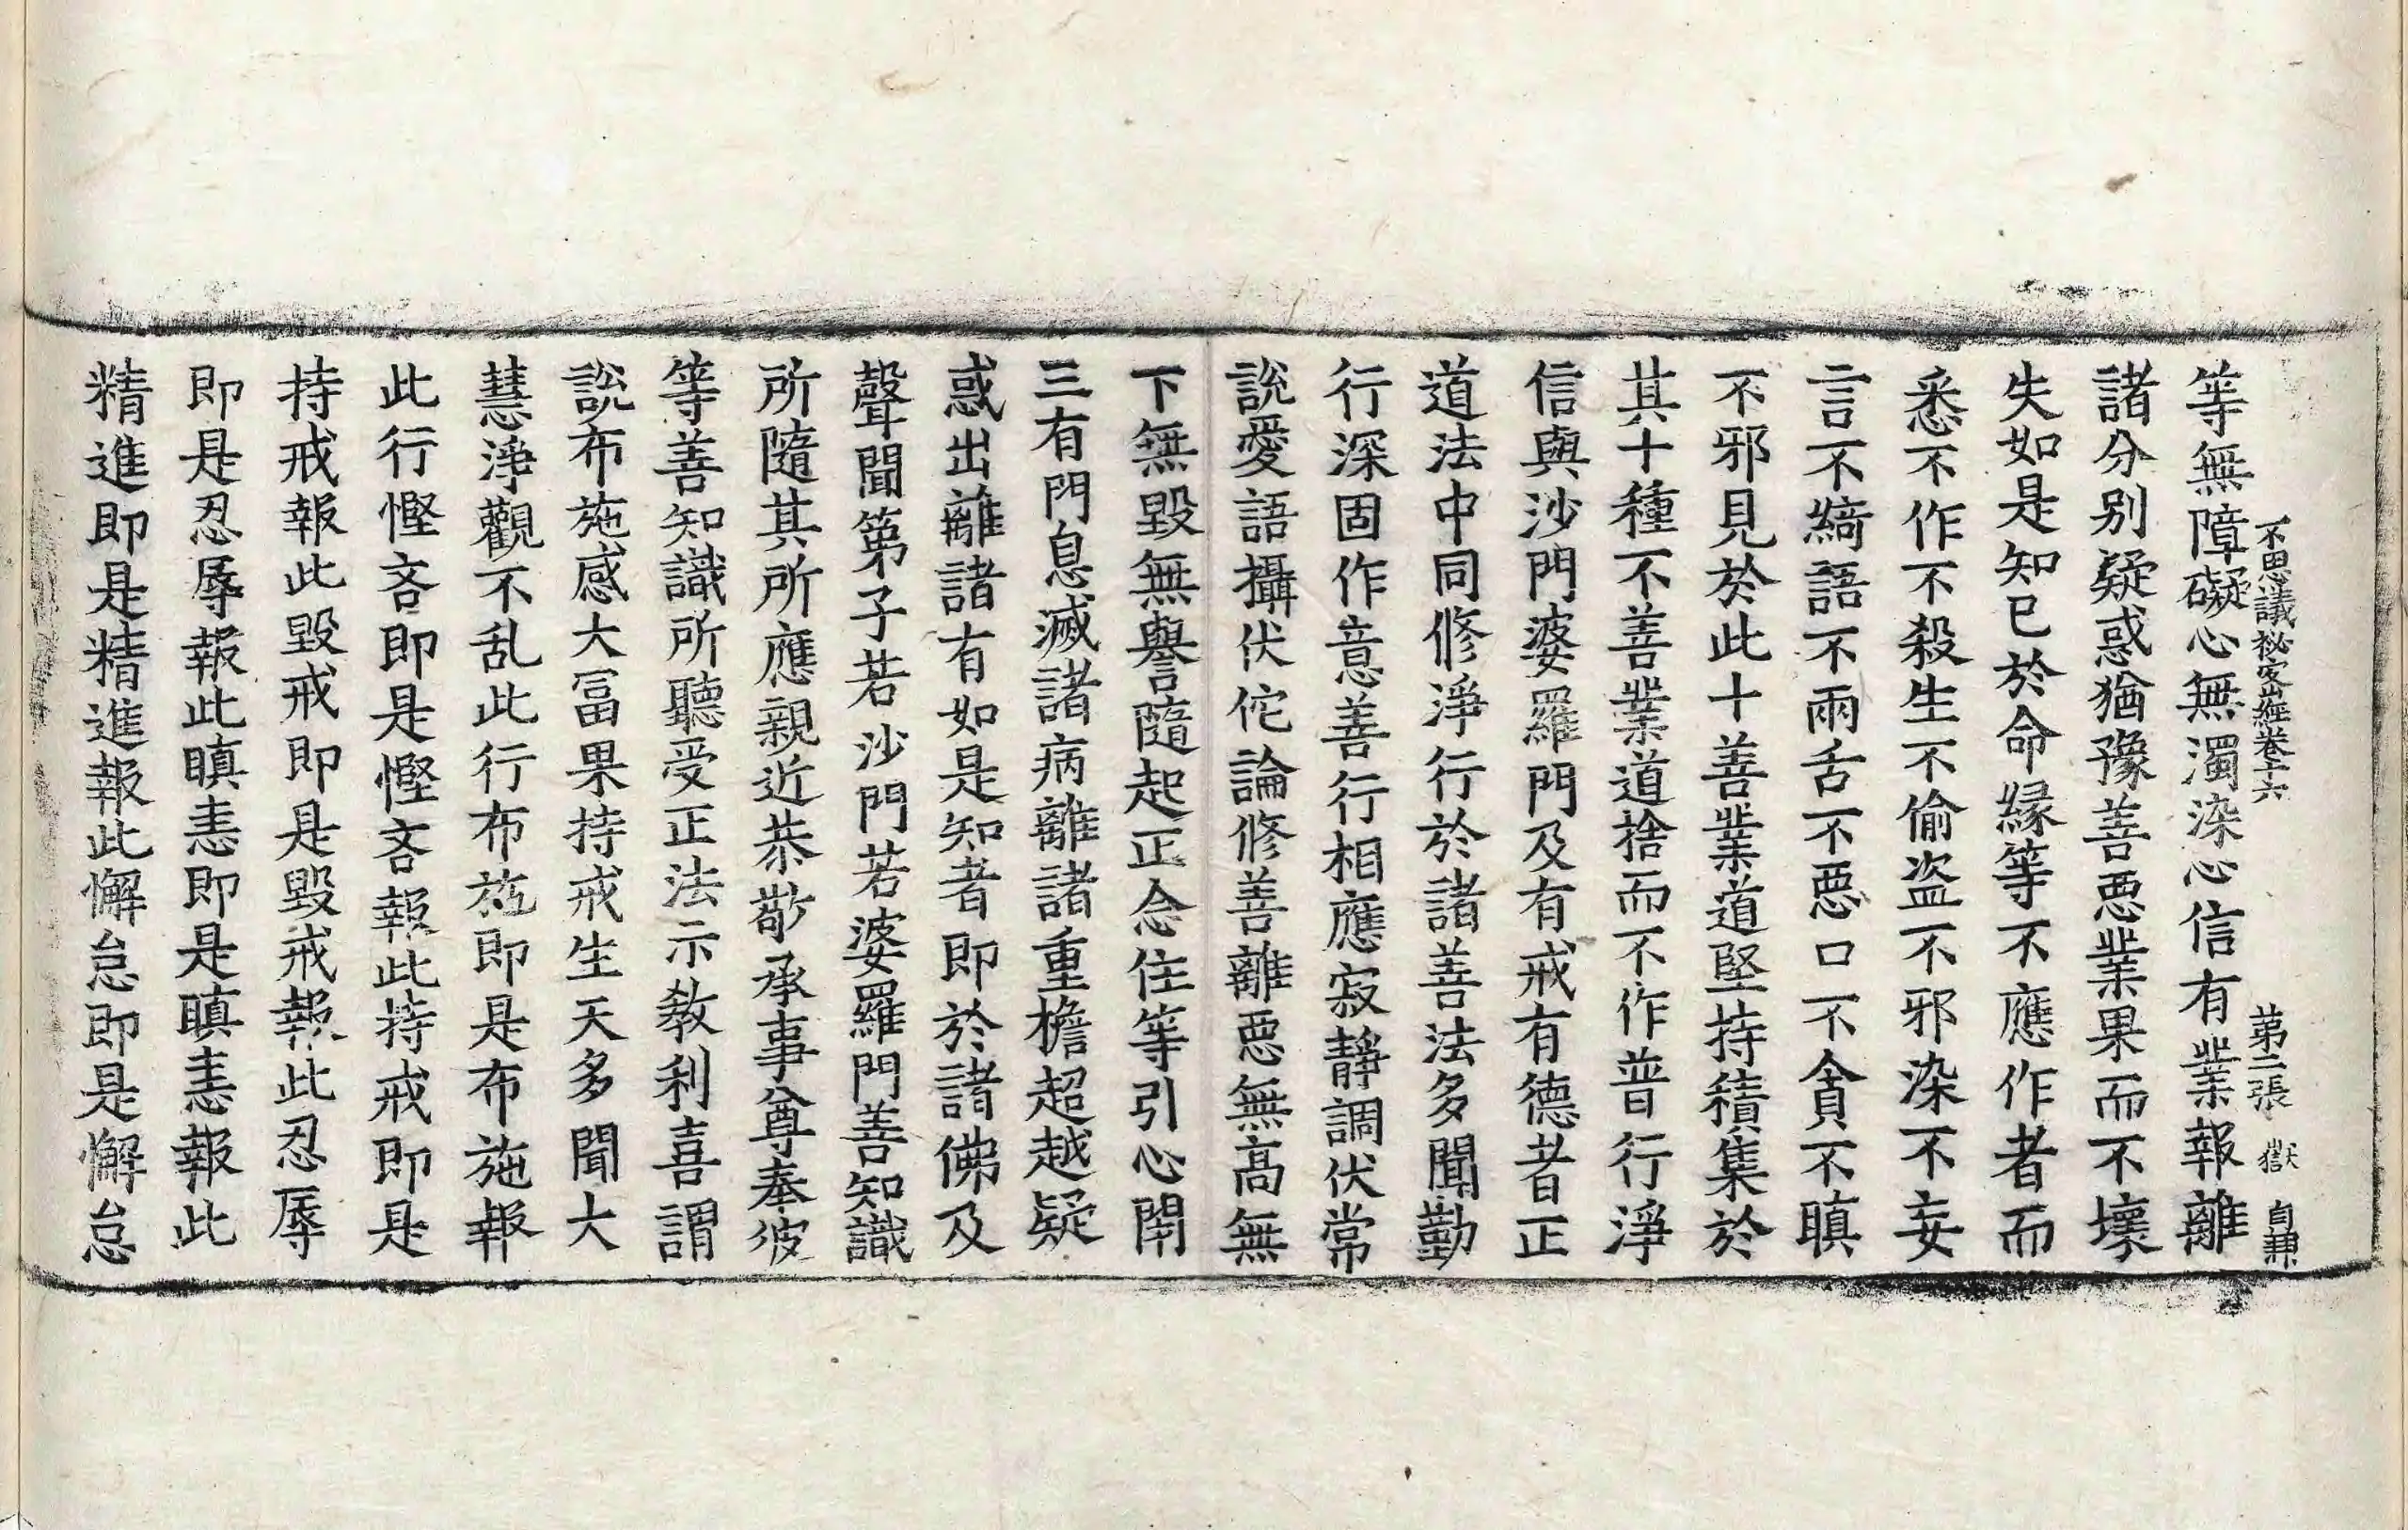 不思議秘密經卷十六 第二張 嶽 自南
等無障礙心無濁染心信有業報離
諸分别疑惑猶豫善惡業果而不壞
失如是知已於命縁等不應作者而
悉不作不殺生不偷盗不邪染不妄
言不綺語不兩舌不惡口不貪不瞋
不邪見於此十善業道堅持積集於
其十種不善業道捨而不作普行淨
信與沙門婆羅門及有戒有德者正
道法中同修淨行於諸善法多聞勤
行深固作意善行相應寂靜調伏常
說愛語攝伏佗論修善離惡無髙無
下無毀無譽隨起正念住等引心閇
三有門息滅諸病離諸重檐超越疑
惑出離諸有如是知者即於諸佛及
聲聞第子若沙門若婆羅門善知識
所隨其所應親近恭敬承事尊奉彼
等善知識所聽受正法示教利喜謂
說布施感大冨果持戒生天多聞大
慧淨觀不乱此行布施即是布施報
此行慳吝即是慳吝報此持戒即是
持戒報此毀戒即是毀戒報此忍辱
即是忍辱報此瞋恚即是瞋恚報此
精進即是精進報此懈怠即是懈怠